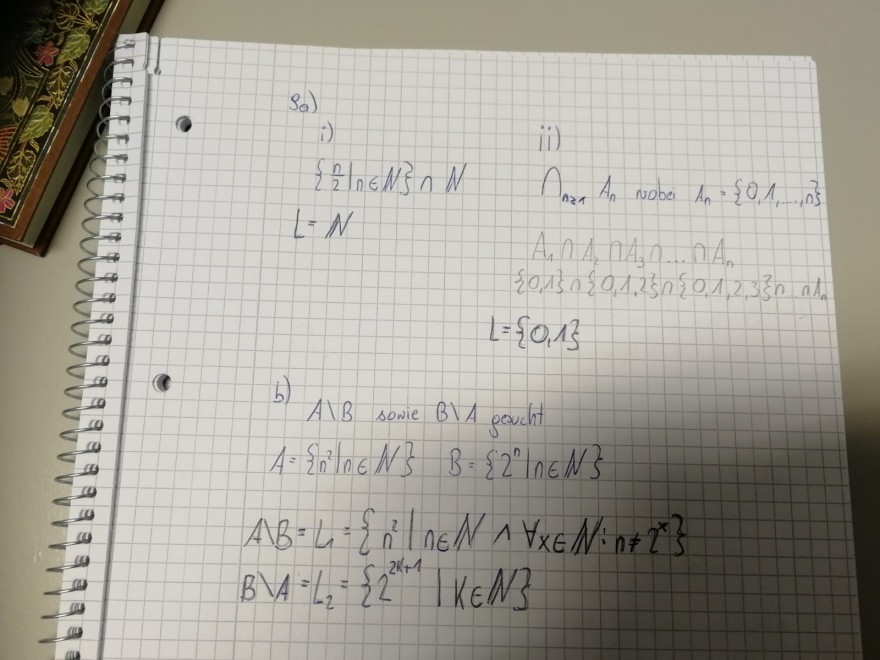 9a)
i)
{n/2 | n ∈ N} ∩ N
L = N
ii)
⋂ₙ≥₁ Aₙ wobei Aₙ = {0,1,...,n}
A₁ ∩ A₂ ∩ A₃ ∩ ... ∩ Aₙ
{0,1} ∩ {0,1,2} ∩ {0,1,2,3} ∩ ... ∩ Aₙ
L = {0,1}
b)
A\B sowie B\A geucht
A = {n² | n ∈ N} B = {2ⁿ | n ∈ N}
A\B = L₁ = {n² | n ∈ N ∧ ∀x ∈ N : n ≠ 2ˣ}
B\A = L₂ = {2^(2K+1) | K ∈ N}